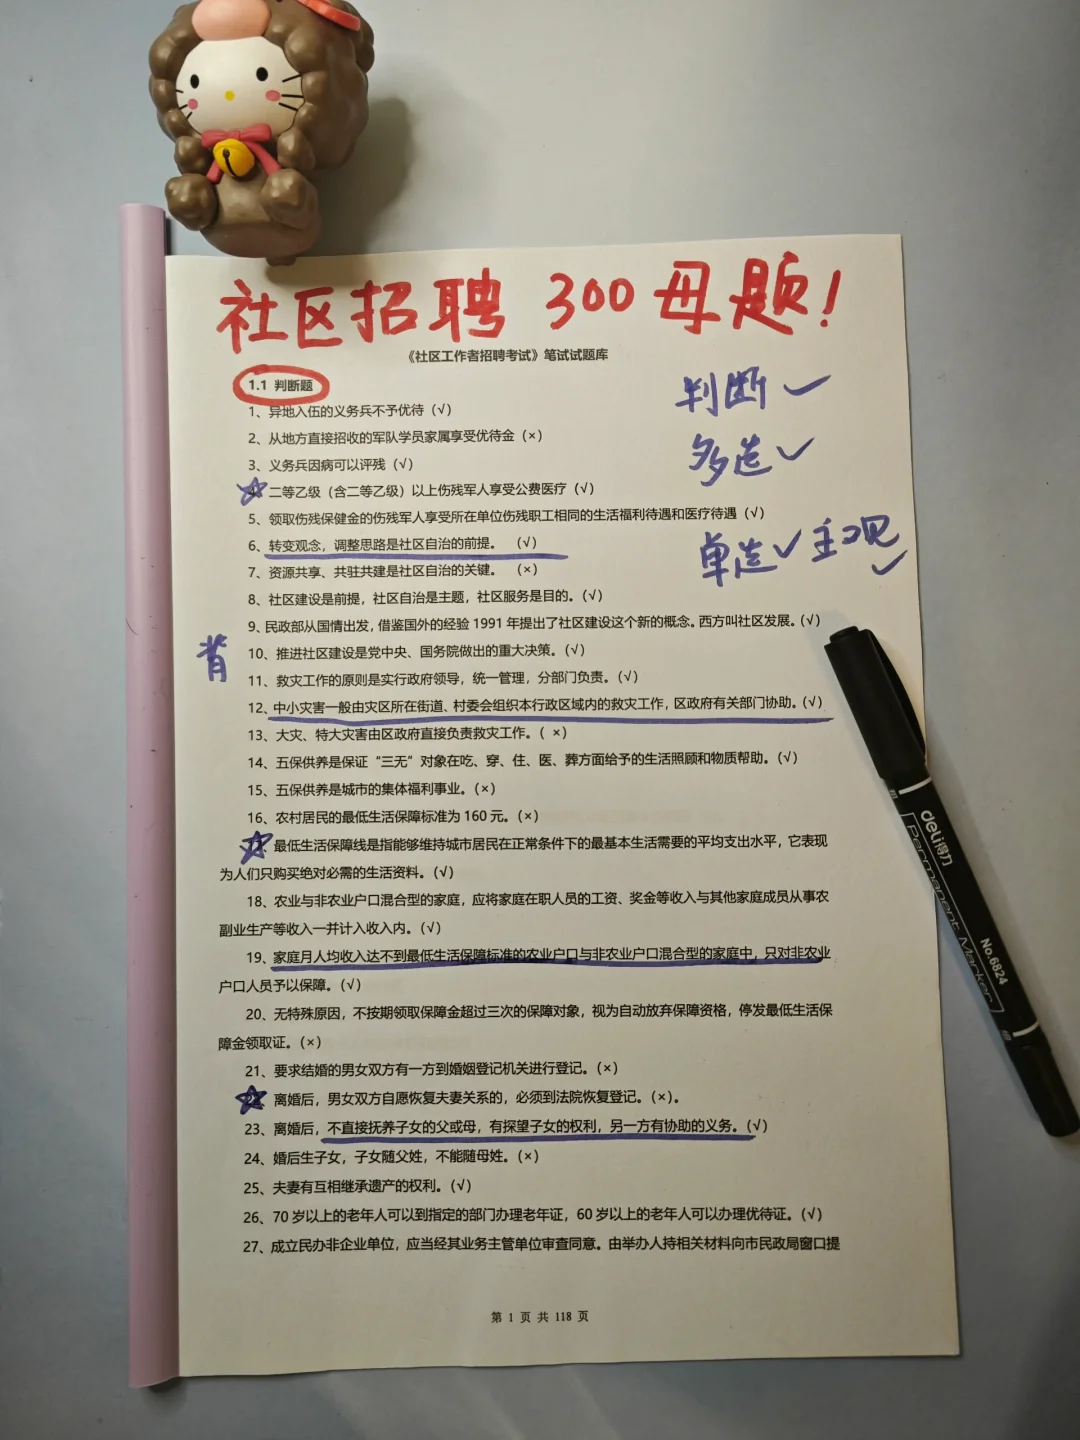 社区招聘 300母题！
《社区工作者招聘考试》笔试试题库
1.1 判断题
判断 ✓
多选 ✓
单选 ✓ 主观 ✓
背
1、异地入伍的义务兵不予优待（√）
2、从地方直接招收的军队学员家属享受优待金（×）
3、义务兵因病可以评残（√）
4、二等乙级（含二等乙级）以上伤残军人享受公费医疗（√）
5、领取伤残保健金的伤残军人享受所在单位伤残职工相同的生活福利待遇和医疗待遇（√）
6、转变观念，调整思路是社区自治的前提。（√）
7、资源共享、共驻共建是社区自治的关键。（×）
8、社区建设是前提，社区自治是主题，社区服务是目的。（√）
9、民政部从国情出发，借鉴国外的经验 1991 年提出了社区建设这个新的概念。西方叫社区发展。（√）
10、推进社区建设是党中央、国务院做出的重大决策。（√）
11、救灾工作的原则是实行政府领导，统一管理，分部门负责。（√）
12、中小灾害一般由灾区所在街道、村委会组织本行政区域内的救灾工作，区政府有关部门协助。（√）
13、大灾、特大灾害由区政府直接负责救灾工作。（ ×）
14、五保供养是保证“三无”对象在吃、穿、住、医、葬方面给予的生活照顾和物质帮助。（√）
15、五保供养是城市的集体福利事业。（×）
16、农村居民的最低生活保障标准为 160 元。（×）
17、最低生活保障线是指能够维持城市居民在正常条件下的最基本生活需要的平均支出水平，它表现
为人们只购买绝对必需的生活资料。（√）
18、农业与非农业户口混合型的家庭，应将家庭在职人员的工资、奖金等收入与其他家庭成员从事农
副业生产等收入一并计入收入内。（√）
19、家庭月人均收入达不到最低生活保障标准的农业户口与非农业户口混合型的家庭中，只对非农业
户口人员予以保障。（√）
20、无特殊原因，不按期领取保障金超过三次的保障对象，视为自动放弃保障资格，停发最低生活保
障金领取证。（×）
21、要求结婚的男女双方有一方到婚姻登记机关进行登记。（×）
22、离婚后，男女双方自愿恢复夫妻关系的，必须到法院恢复登记。（×）。
23、离婚后，不直接抚养子女的父或母，有探望子女的权利，另一方有协助的义务。（√）
24、婚后生子女，子女随父姓，不能随母姓。（×）
25、夫妻有互相继承遗产的权利。（√）
26、70 岁以上的老年人可以到指定的部门办理老年证，60 岁以上的老年人可以办理优待证。（√）
27、成立民办非企业单位，应当经其业务主管单位审查同意。由举办人持相关材料向市民政局窗口提
第 1 页 共 118 页
deli得力
Permanent Marker
No.6824